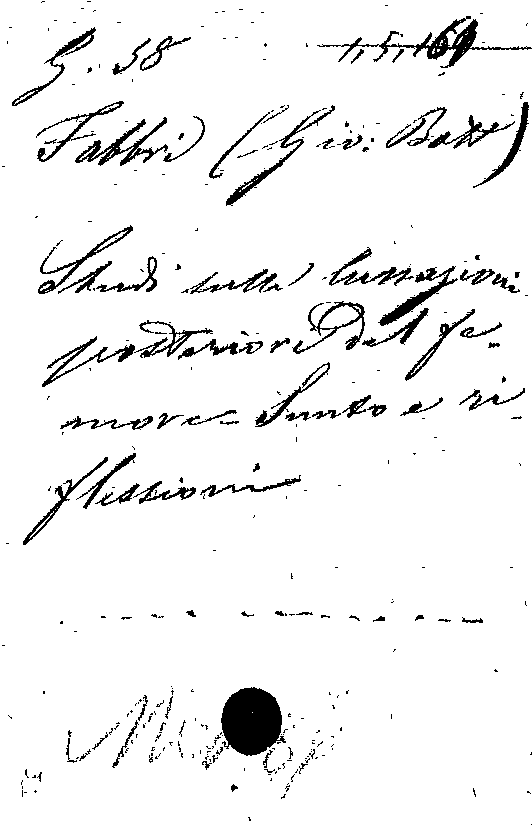 G. 58 1,5,161
Fabbri (Gio: Batt)
Studi sulle lussazioni
posteriori del fe-
more - Sunto e ri-
flessioni